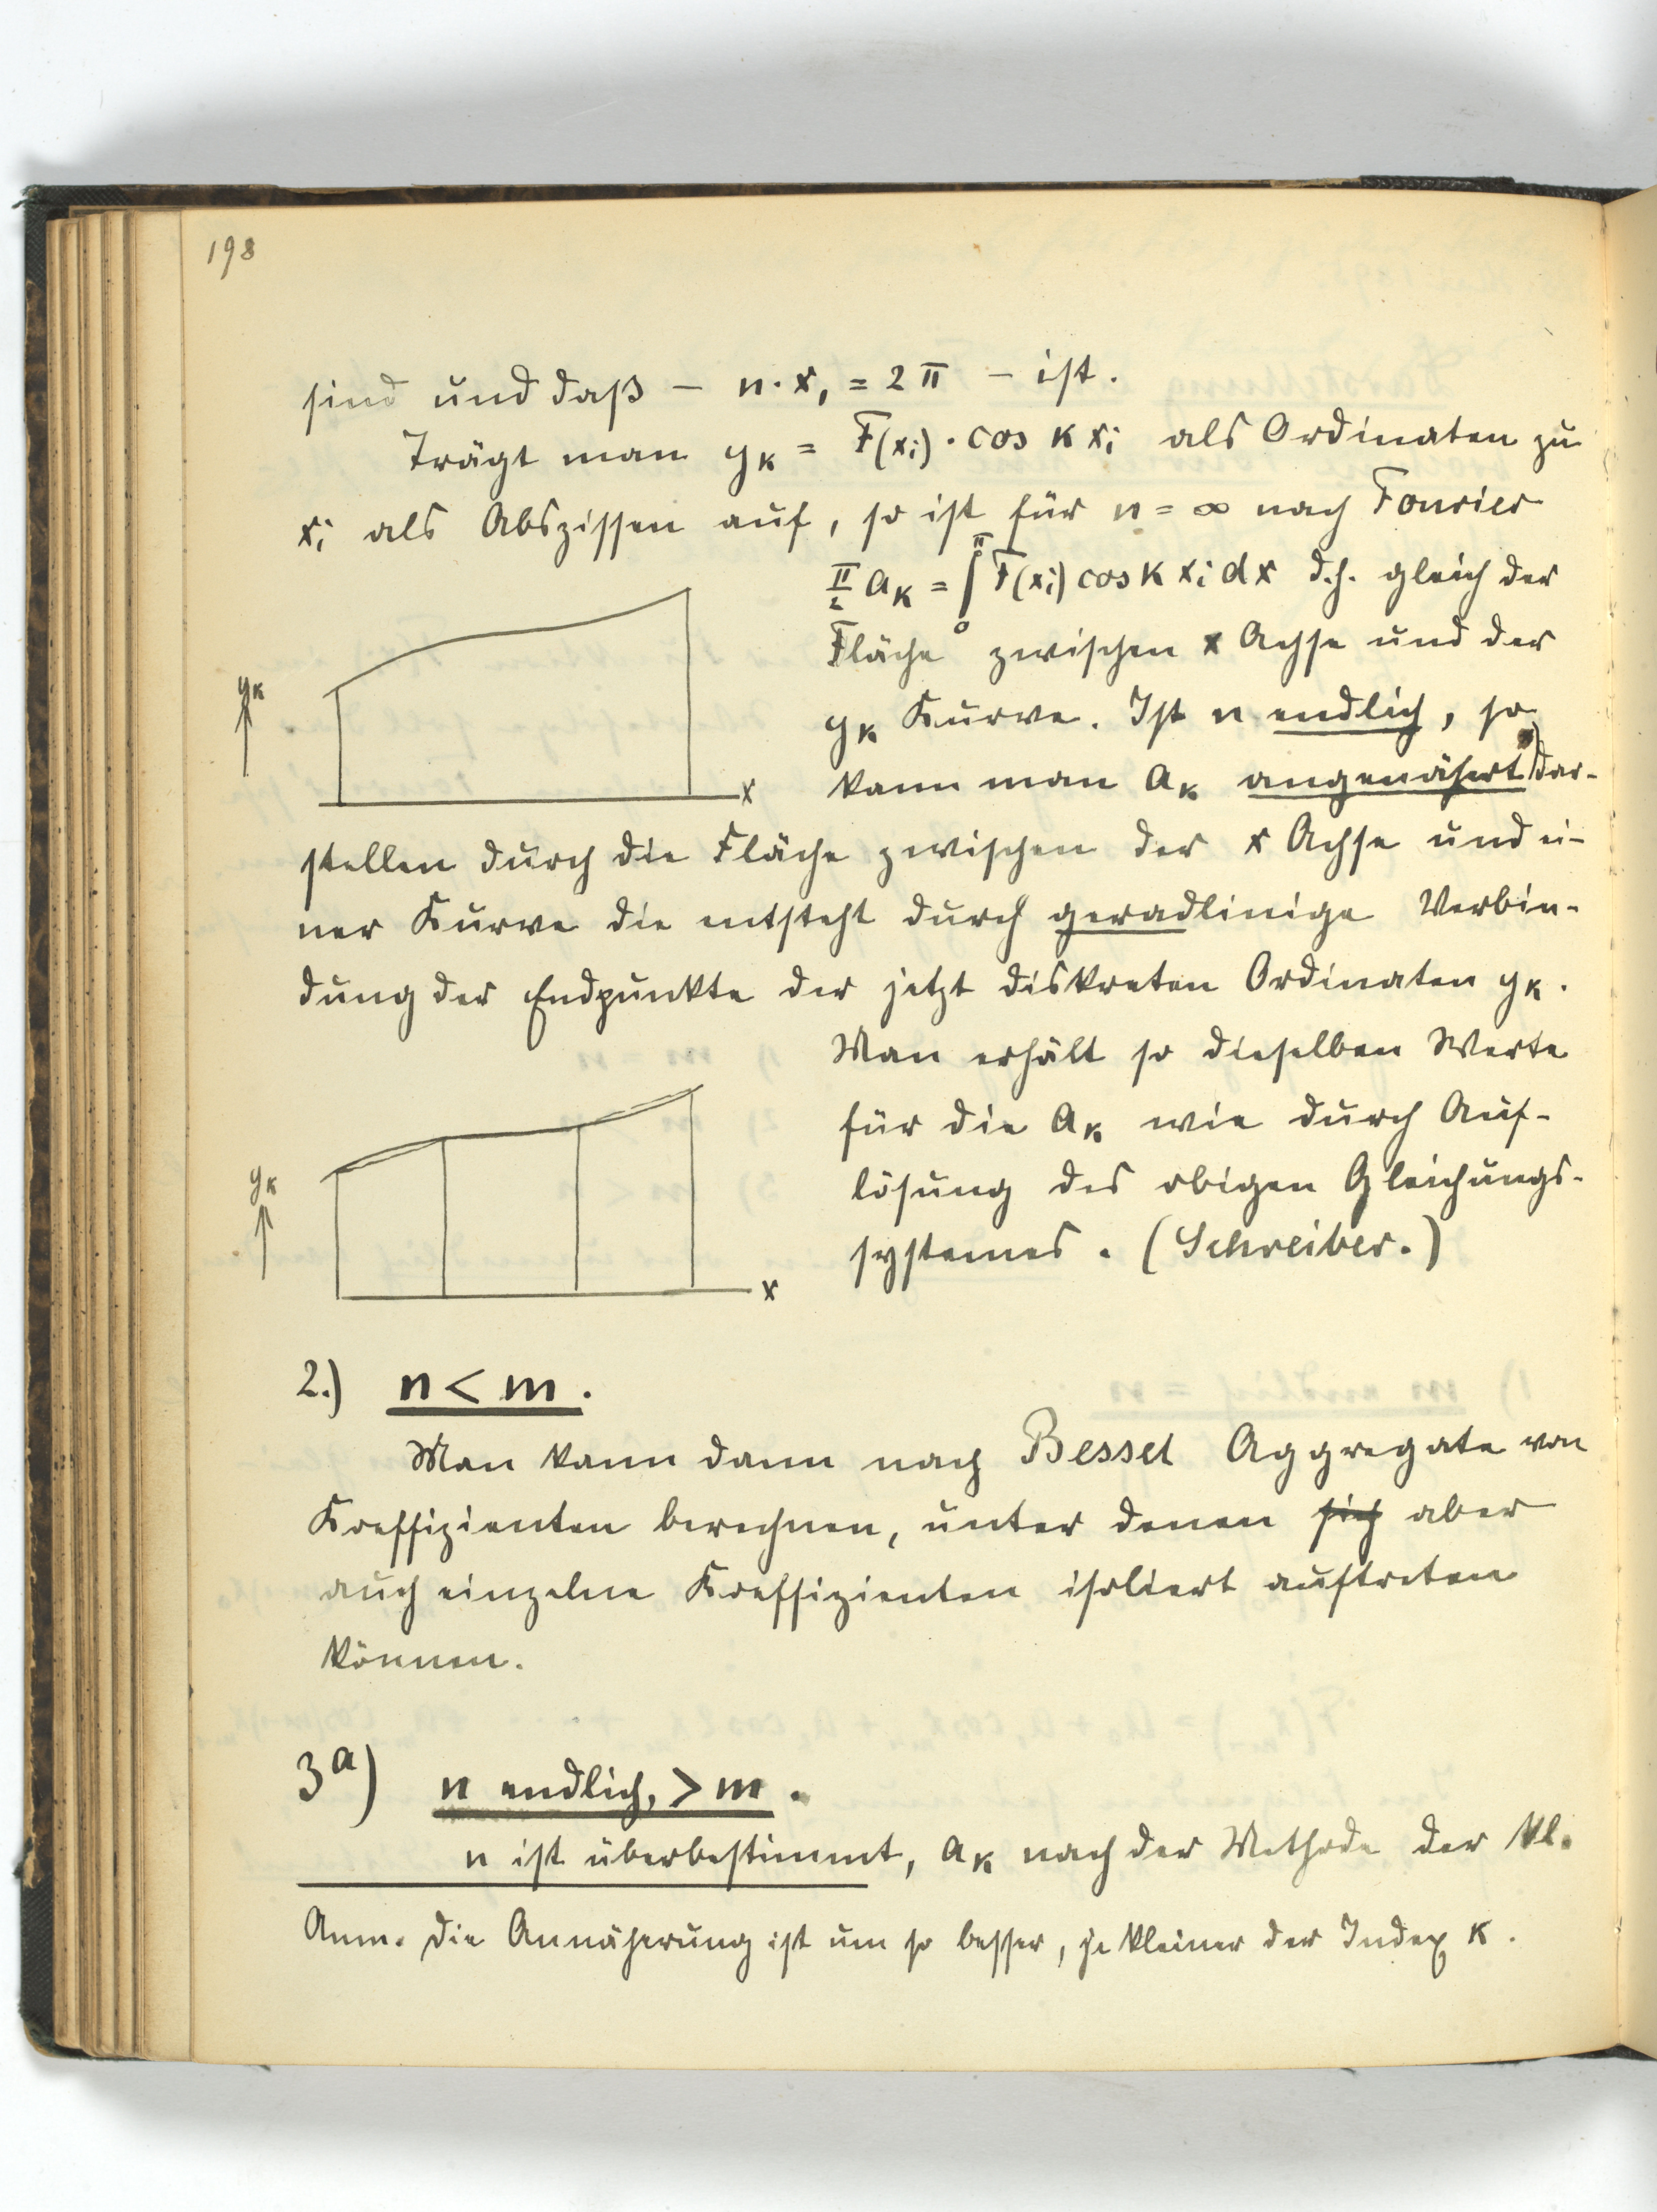 198
sind und daß – n · x₁ = 2 π – ist.
Trägt man yₖ = F(xᵢ) · cos k xᵢ als Ordinaten zu
xᵢ als Abszissen auf, so ist für n = ∞ nach Fourier
π/2 aₖ = ∫₀^π F(xᵢ) cos k xᵢ dx d.h. gleich der
Fläche zwischen x Achse und der
yₖ Kurve. Ist n endlich, so
kann man aₖ angenähert dar-
stellen durch die Fläche zwischen der x Achse und ei-
ner Kurve die entsteht durch geradlinige Verbin-
dung der Endpunkte der jetzt diskreten Ordinaten yₖ.
Man erhält so dieselben Werte
für die aₖ wie durch Auf-
lösung des obigen Gleichungs-
systemes. (Schreiber.)
yₖ
x
yₖ
x
2.) n < m.
Man kann dann nach Bessel Aggregate von
Koeffizienten berechnen, unter denen sich aber
auch einzelne Koeffizienten isoliert auftreten
können.
3a) n endlich, > m.
n ist überbestimmt, aₖ nach der Methode der kl.
Anm. Die Annäherung ist um so besser, je kleiner der Index k.